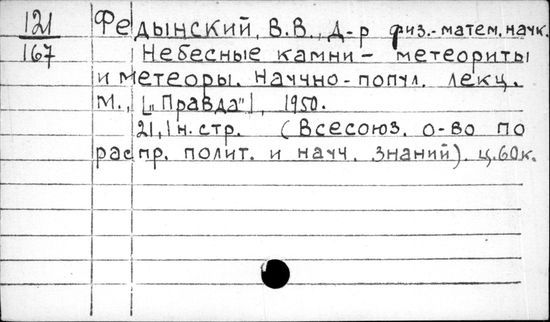 121
167
Федынский, В.В., Д-р физ.-матем. начк.
Небесные камни - метеориты
и метеоры. Начно-попчл. лекц.
М., ["Правда"], 1950.
21,1 н. стр. (Всесоюз. о-во по
распр. полит. и начч. знаний). ц.60к.